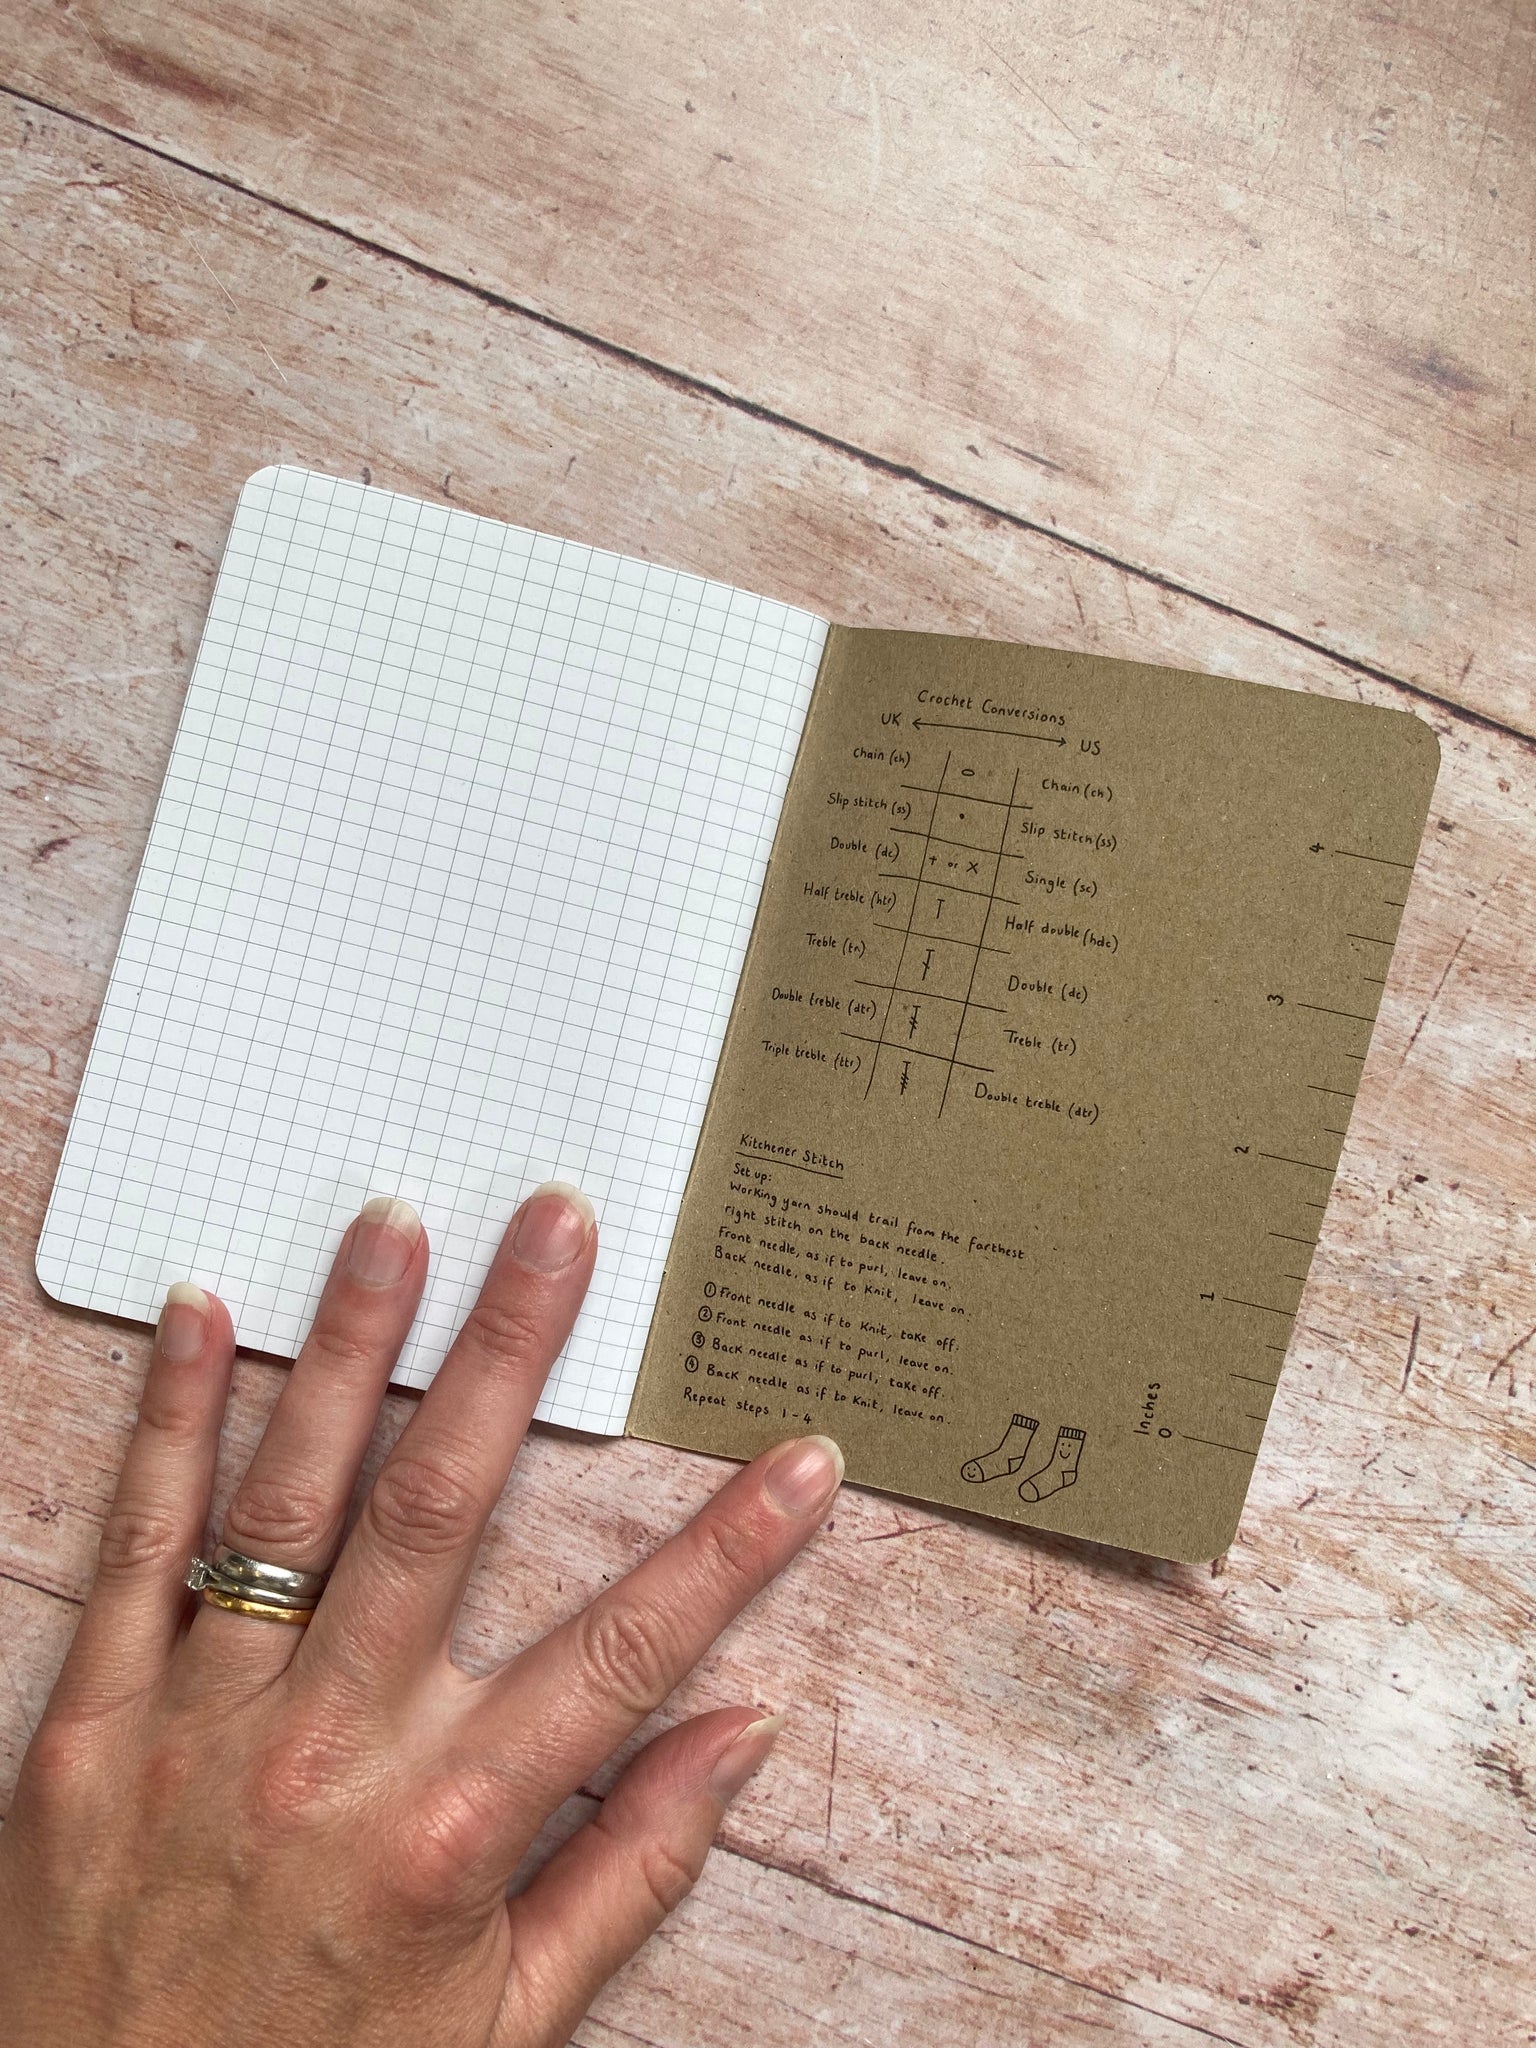 Crochet Conversions
UK ⟷ US
Chain (ch) o Chain (ch)
Slip stitch (ss) • Slip stitch (ss)
Double (dc) + or X Single (sc)
Half treble (htr) Half double (hdc)
Treble (tr) Double (dc)
Double treble (dtr) Treble (tr)
Triple treble (ttr) Double treble (dtr)
Kitchener Stitch
Set up:
Working yarn should trail from the farthest
right stitch on the back needle.
Front needle, as if to purl, leave on.
Back needle, as if to Knit, leave on.
① Front needle as if to Knit, take off.
② Front needle as if to purl, leave on.
③ Back needle as if to purl, take off.
④ Back needle as if to Knit, leave on.
Repeat steps 1-4
4
3
2
1
0
Inches